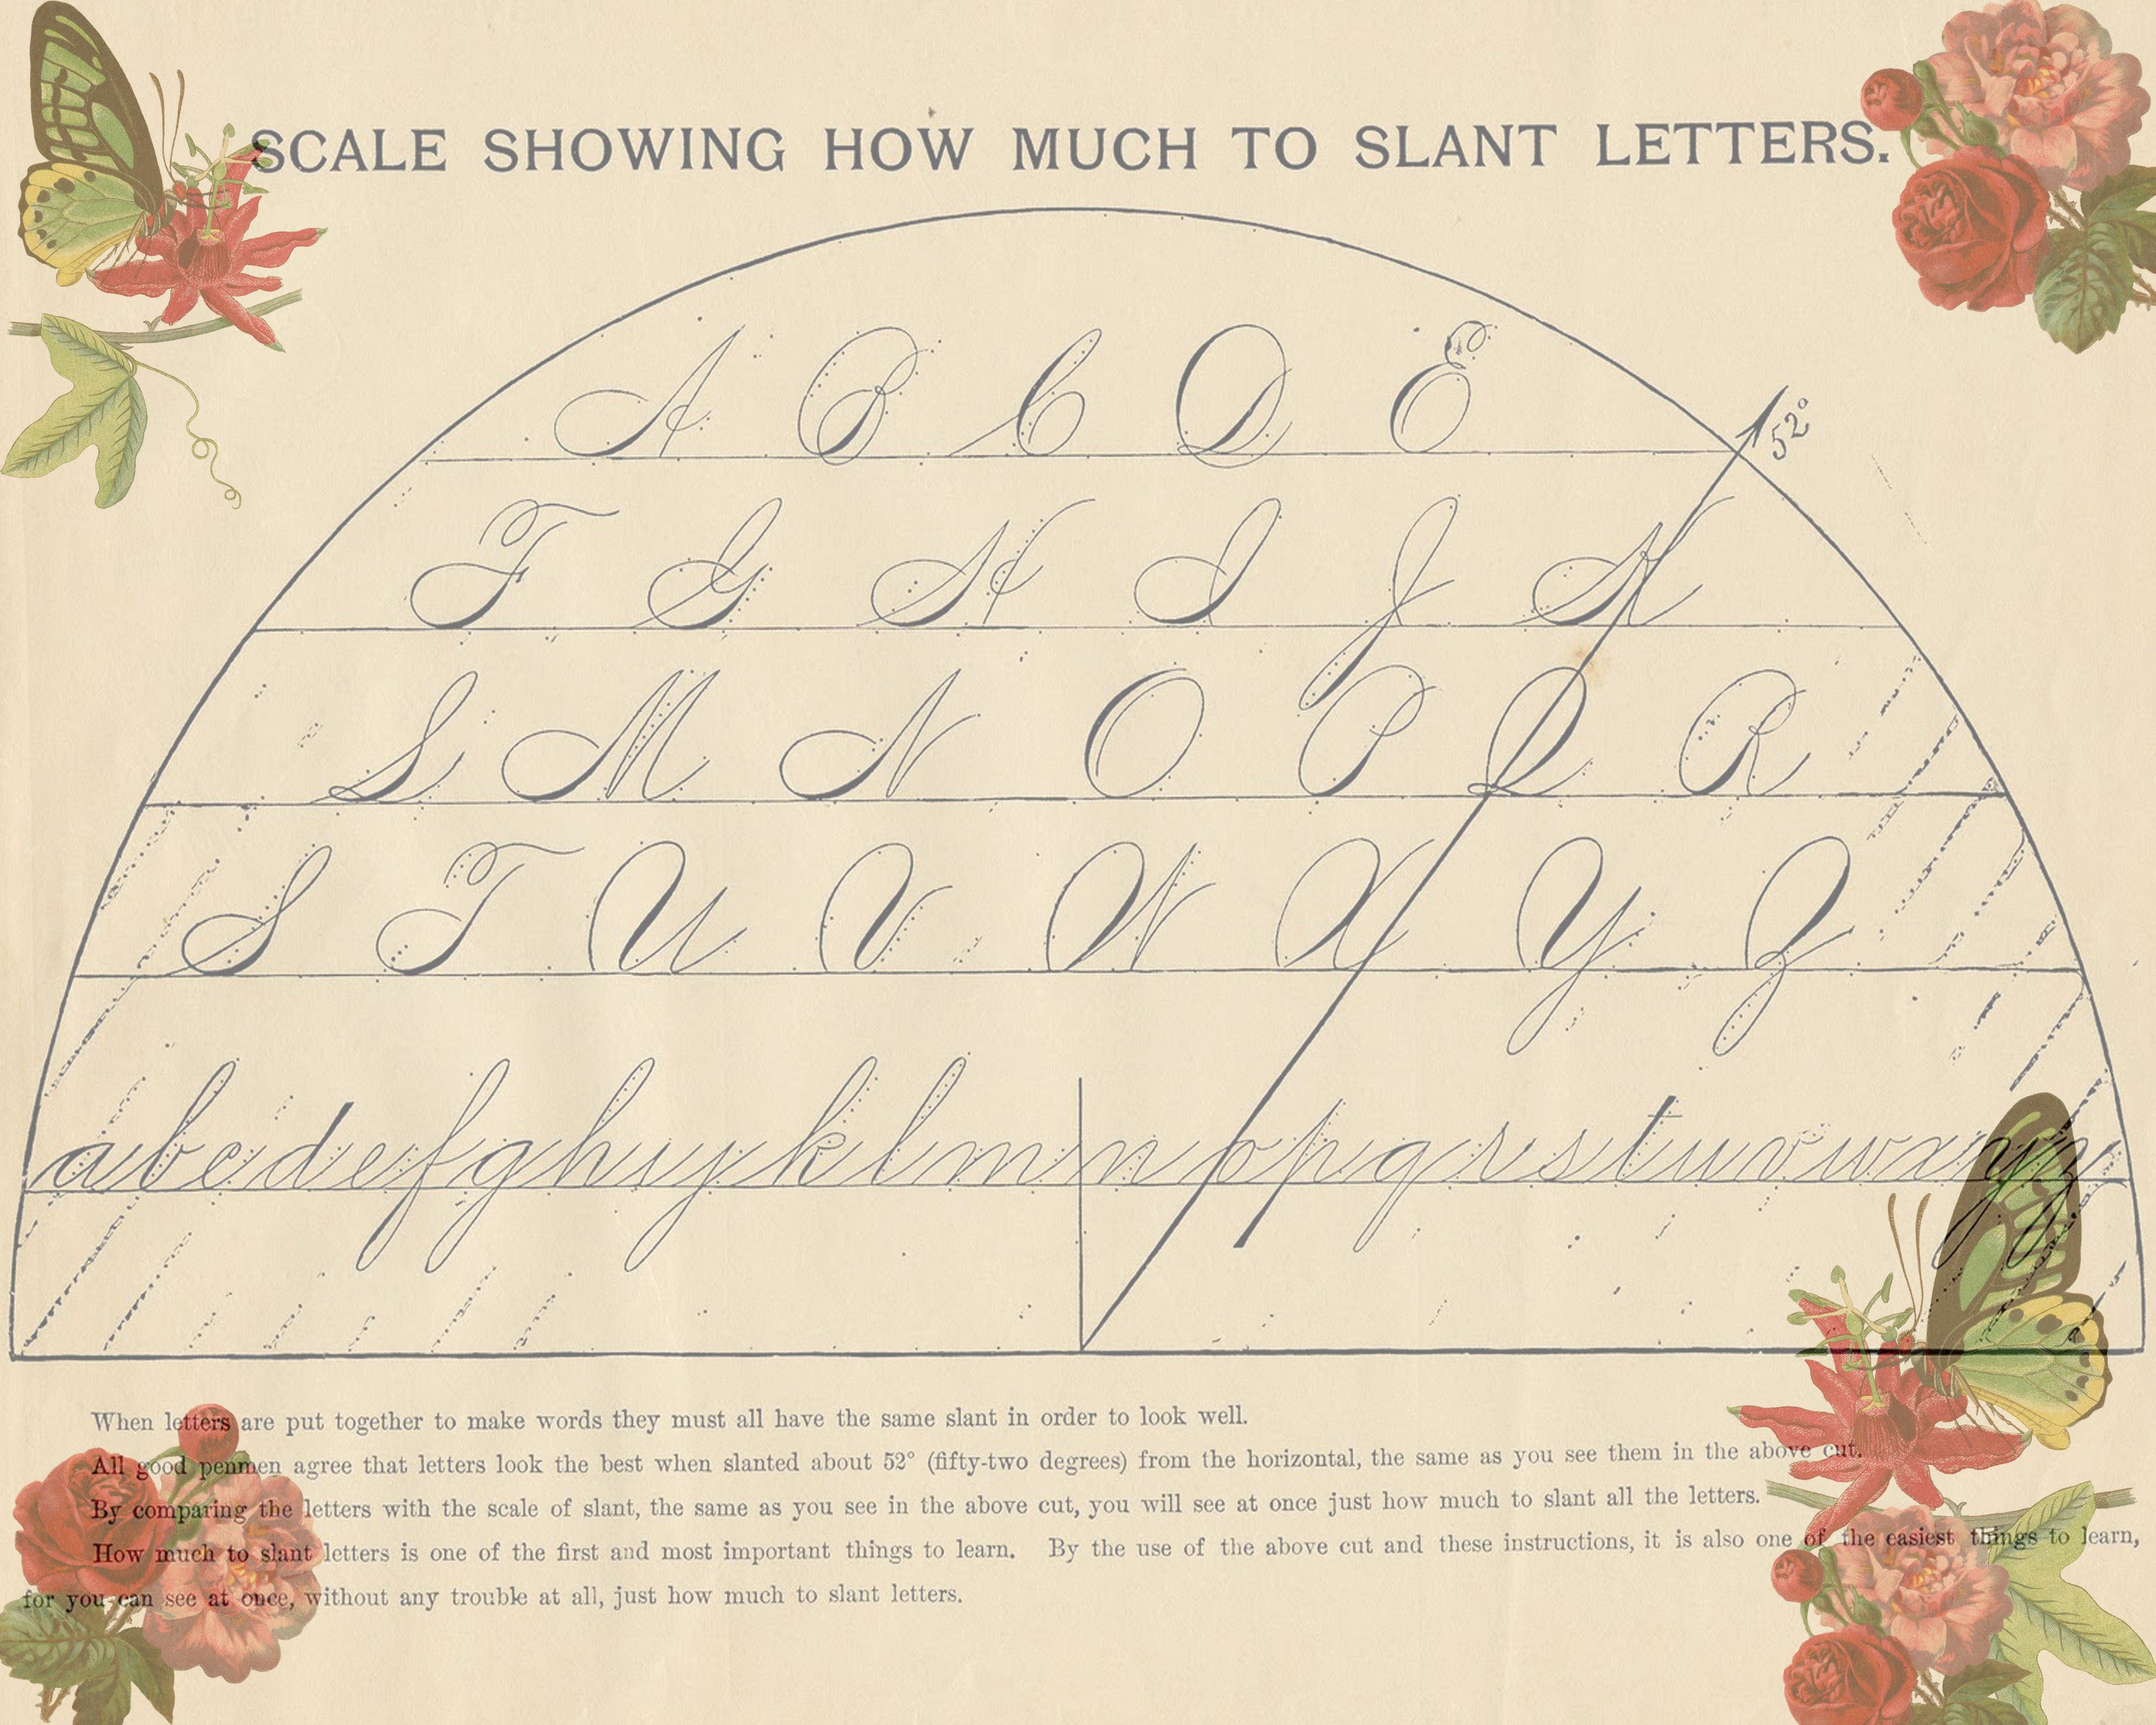 SCALE SHOWING HOW MUCH TO SLANT LETTERS.
A B C D E
52°
F G H I J K
L M N O P Q R
S T U V W X Y Z
abcdefghijklmnopqrstuvwxyz
When letters are put together to make words they must all have the same slant in order to look well.
All good penmen agree that letters look the best when slanted about 52° (fifty-two degrees) from the horizontal, the same as you see them in the above cut.
By comparing the letters with the scale of slant, the same as you see in the above cut, you will see at once just how much to slant all the letters.
How much to slant letters is one of the first and most important things to learn. By the use of the above cut and these instructions, it is also one of the easiest things to learn,
for you can see at once, without any trouble at all, just how much to slant letters.